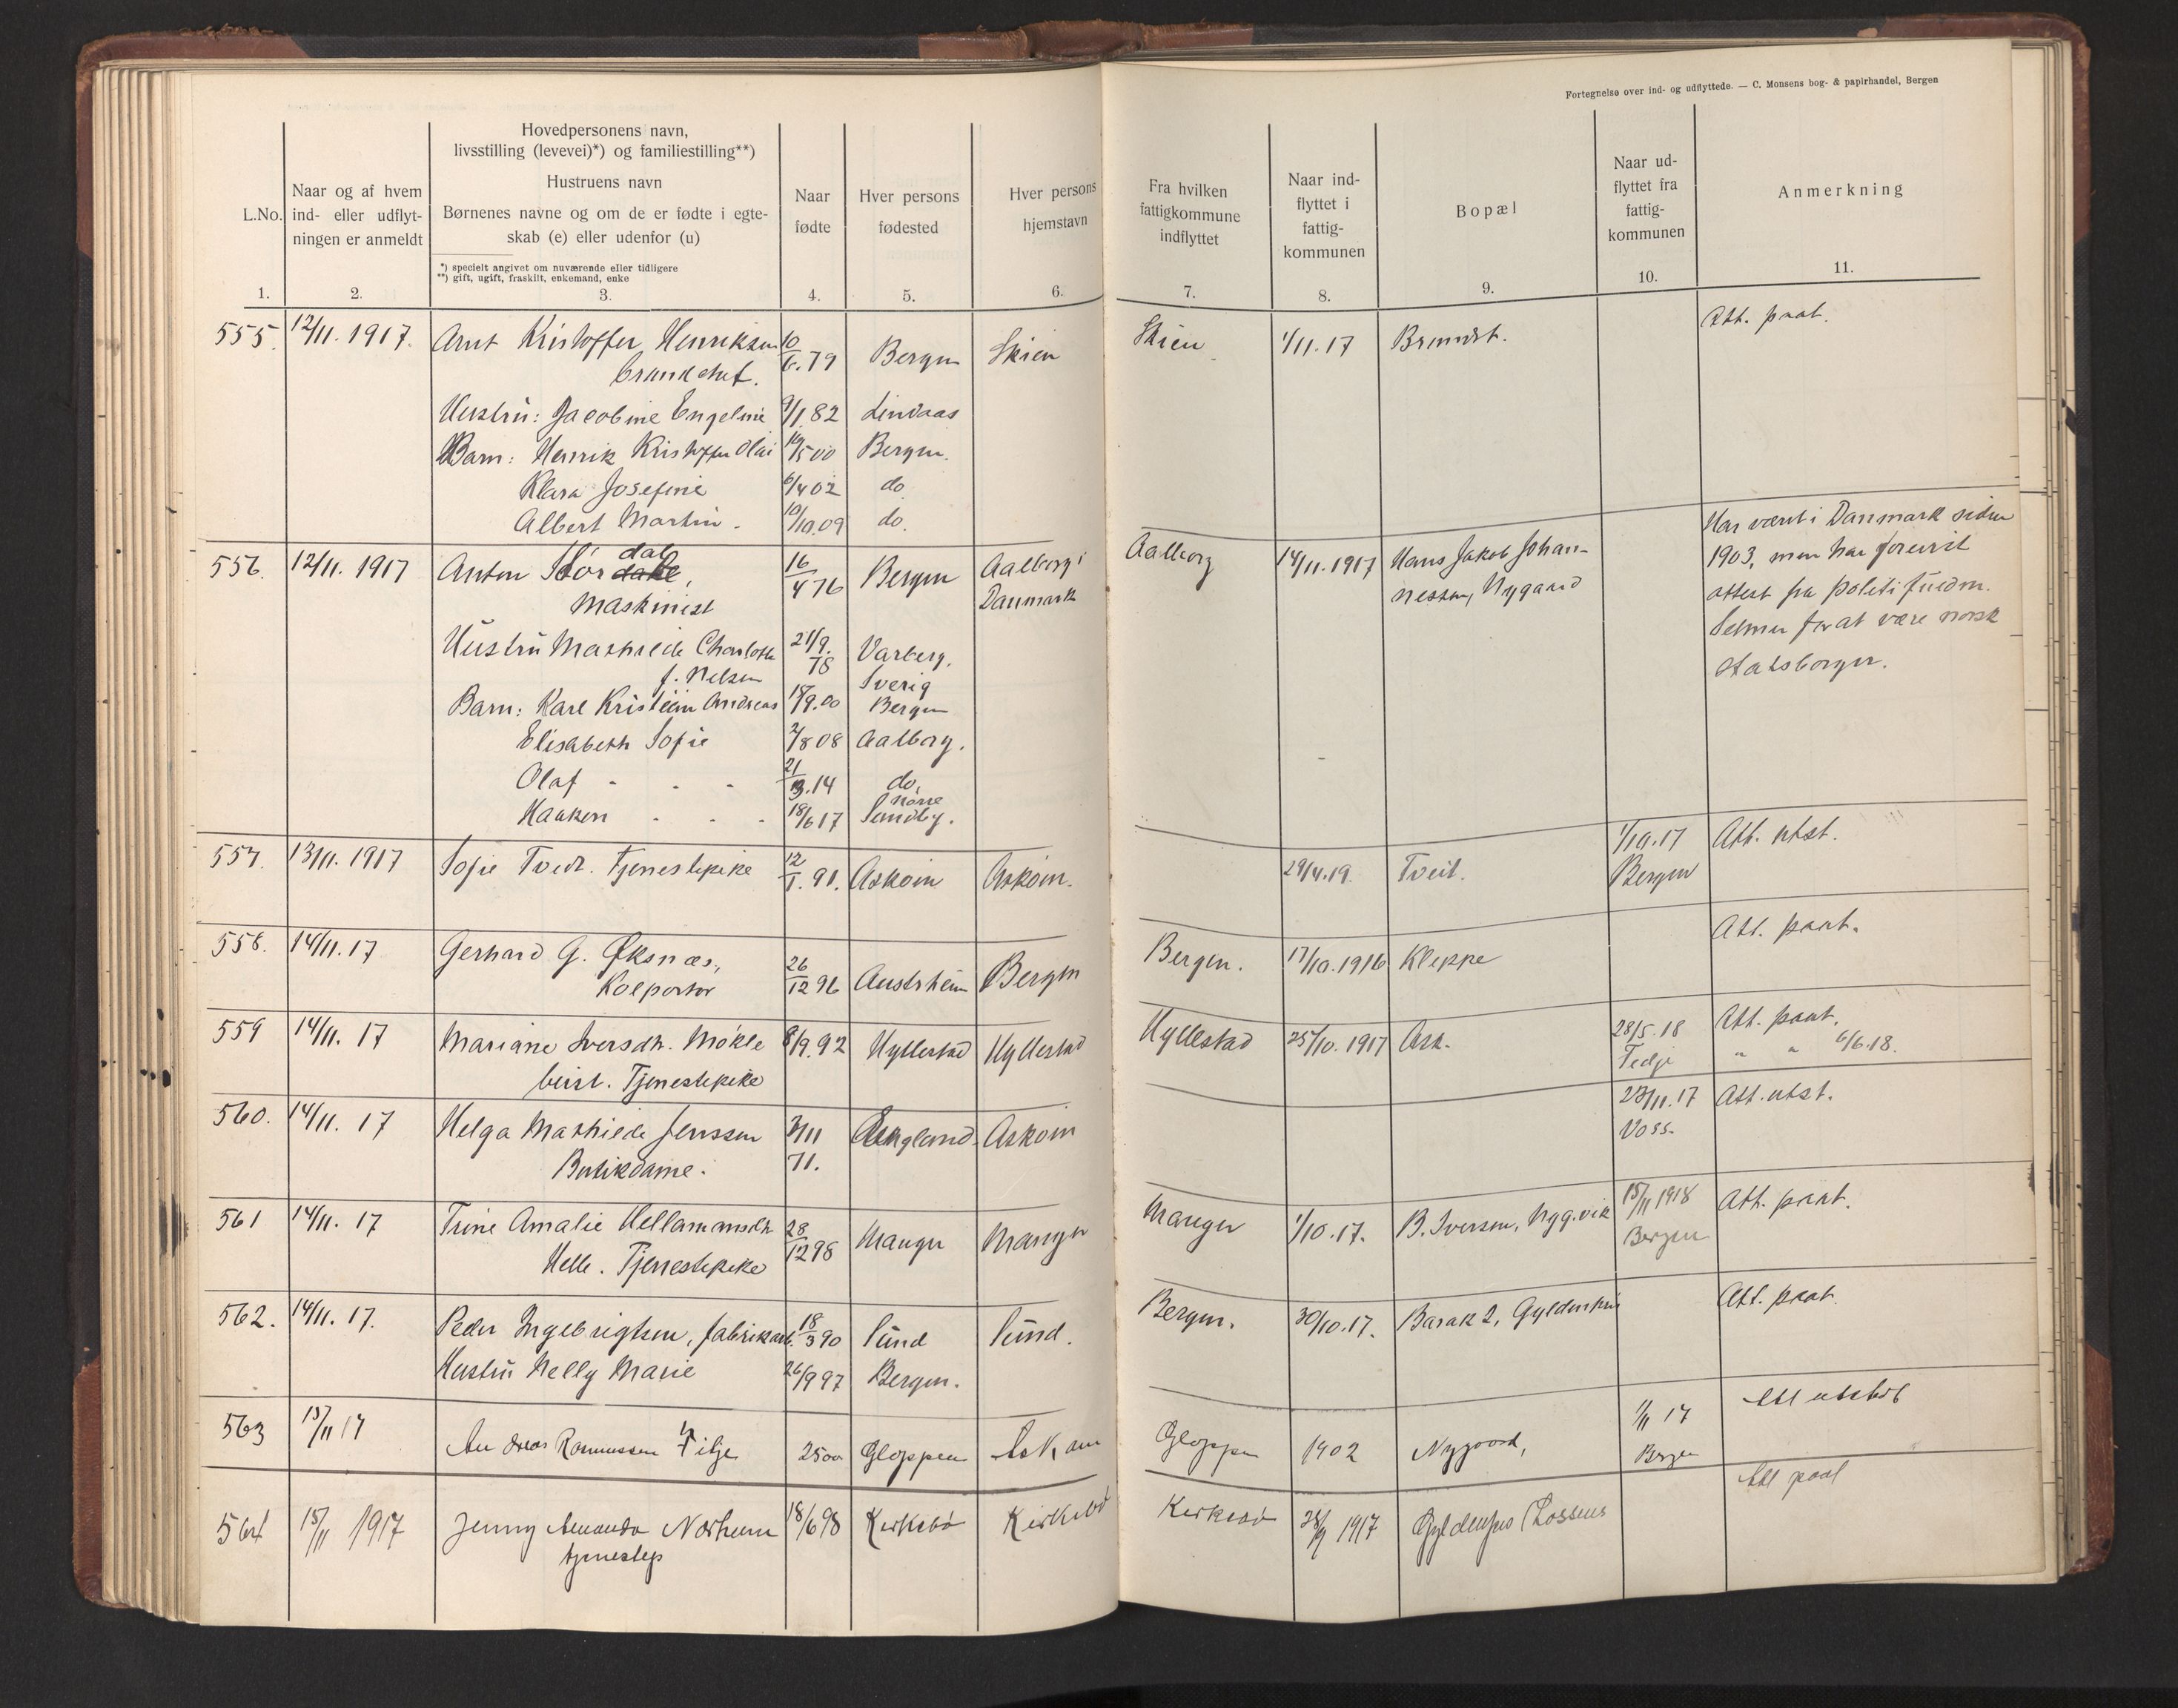 Fortegnelse over ind- og udflyttede. — C. Monsens bog- & papirhandel, Bergen
L.No.
1.
Naar og af hvem
ind- eller udflyt-
ningen er anmeldt
2.
Hovedpersonens navn,
livsstilling (levevei)*) og familiestilling**)
Hustruens navn
Børnenes navne og om de er fødte i egte-
skab (e) eller udenfor (u)
*) specielt angivet om nuværende eller tidligere
**) gift, ugift, fraskilt, enkemand, enke
3.
Naar
fødte
4.
Hver persons
fødested
5.
Hver persons
hjemstavn
6.
Fra hvilken
fattigkommune
indflyttet
7.
Naar ind-
flyttet i
fattig-
kommunen
8.
Bopæl
9.
Naar ud-
flyttet fra
fattig-
kommunen
10.
Anmerkning
11.
555. 12/11. 1917. Arnt Kristoffer Henriksen 10/6. 79 Bergen Skien Skien 1/11. 17 Att. paat.
brandchef.
Hustru: Jacobine Engeline 9/1 82 Lindaas
Barn: Henrik Kristoffer Olai 19/5 00 Bergen.
Klara Josefine 6/4 02 do
Albert Martin - 10/10.09 do.
556. 12/11. 1917 Anton Stördal, 16/4 76 Bergen Aalborg i Aalborg 14/11. 1917 Hans Jakob Johan-
Maskinist Danmark nessen, Nygaard
Har været i Danmark siden
1903, men har forevist
attest fra politifuldm.
Selmer for at være norsk
statsborger.
Hustru Mathilde Charlotte 21/9. 78 Varberg,
f. Nelsen Sverig
Barn: Karl Kristian Andreas 18/9.00 Bergen
Elisabeth Sofie 2/8 08 Aalborg.
Olaf - - - 21/3.14 do.
Haakon - - - 18/6 17 Nörre Sundby.
557. 13/11. 1917 Sofie Tvedt. Tjenestepike 12/1. 91. Askøin Askøin. 29/4.19. Tveit. 1/10.17 Att. utst.
Bergen
558. 14/11. 17 Gerhard G. Øksnæs, 26/12 96 Austrheim Bergen Bergen. 17/10.1916 Kleppe Att. paat.
Kolportør
559 14/11. 17 Mariane Iversdtr. Mökle- 8/9.92 Hyllestad Hyllestad Hyllestad 25/10. 1917 Ask. 28/5.18 Att. paat.
beist. Tjenestepike Fedje " " 6/6.18.
560. 14/11. 17 Helga Mathilde Jenssen 3/11 71. England Askøin 23/11. 17 Att. utst.
Butikdame. Voss.
561 14/11. 17 Trine Amalie Hellamansdtr. 28/12 98 Manger Manger Manger 1/10. 17. B. Iversen, Nygvik 15/11 1918 Att. paat.
Helle. Tjenestepike Bergen
562. 14/11. 17. Peder Ingebrigtsen, fabrikarb. 18/3 90 Sund Sund. Bergen. 30/10.17. Barak 2, Gyldenkri Att. paat.
Hustru Nelly Marie 26/9 97 Bergen.
563 15/11 17 Andreas Rasmussen 25 00 Gloppen Askøin Gloppen 1902 Nygaard, 1/11 17 Att utstedt
Bergen
564 15/11 1917 Jenny Amanda Norheim 18/6 98 Kirkebö Kirkebö Kirkebö 28/9 1917 Att paat
tjenestep